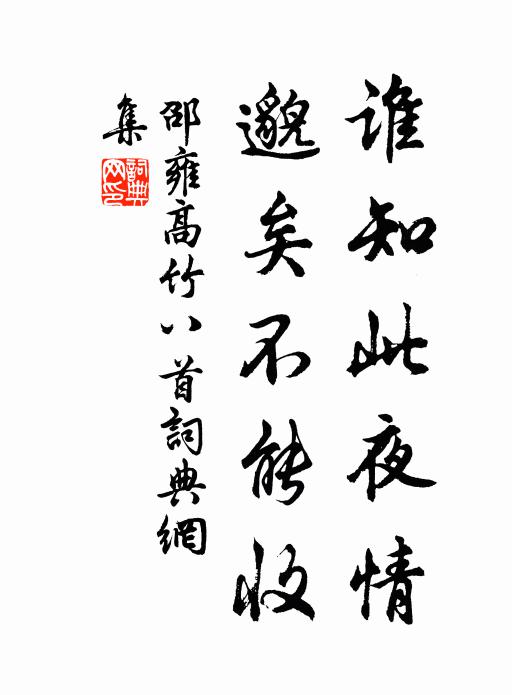 誰知此夜情
邈矣不能收
邵雍高竹八首詞典網
集
詞典
网印